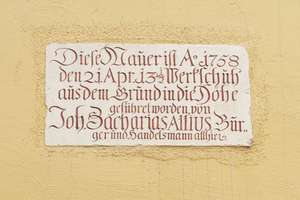 Diese Maŭer ist Aō 1758
den 21. Apr. 13½ Werkschŭh
aŭs dem Grŭnd in die Höhe
geführet worden, von
Joh. Zacharias Allius Bür-
ger und Handelsmann allhier